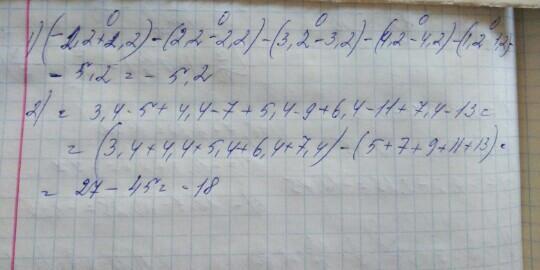 0 0 0 0 0
1) (-2,2+2,2)-(2,2-2,2)-(3,2-3,2)-(4,2-4,2)-(1,2-1,2)-
- 5,2 = - 5,2
2) = 3,4-5+4,4-7+5,4-9+6,4-11+7,4-13=
= (3,4+4,4+5,4+6,4+7,4)-(5+7+9+11+13)=
= 27-45=-18